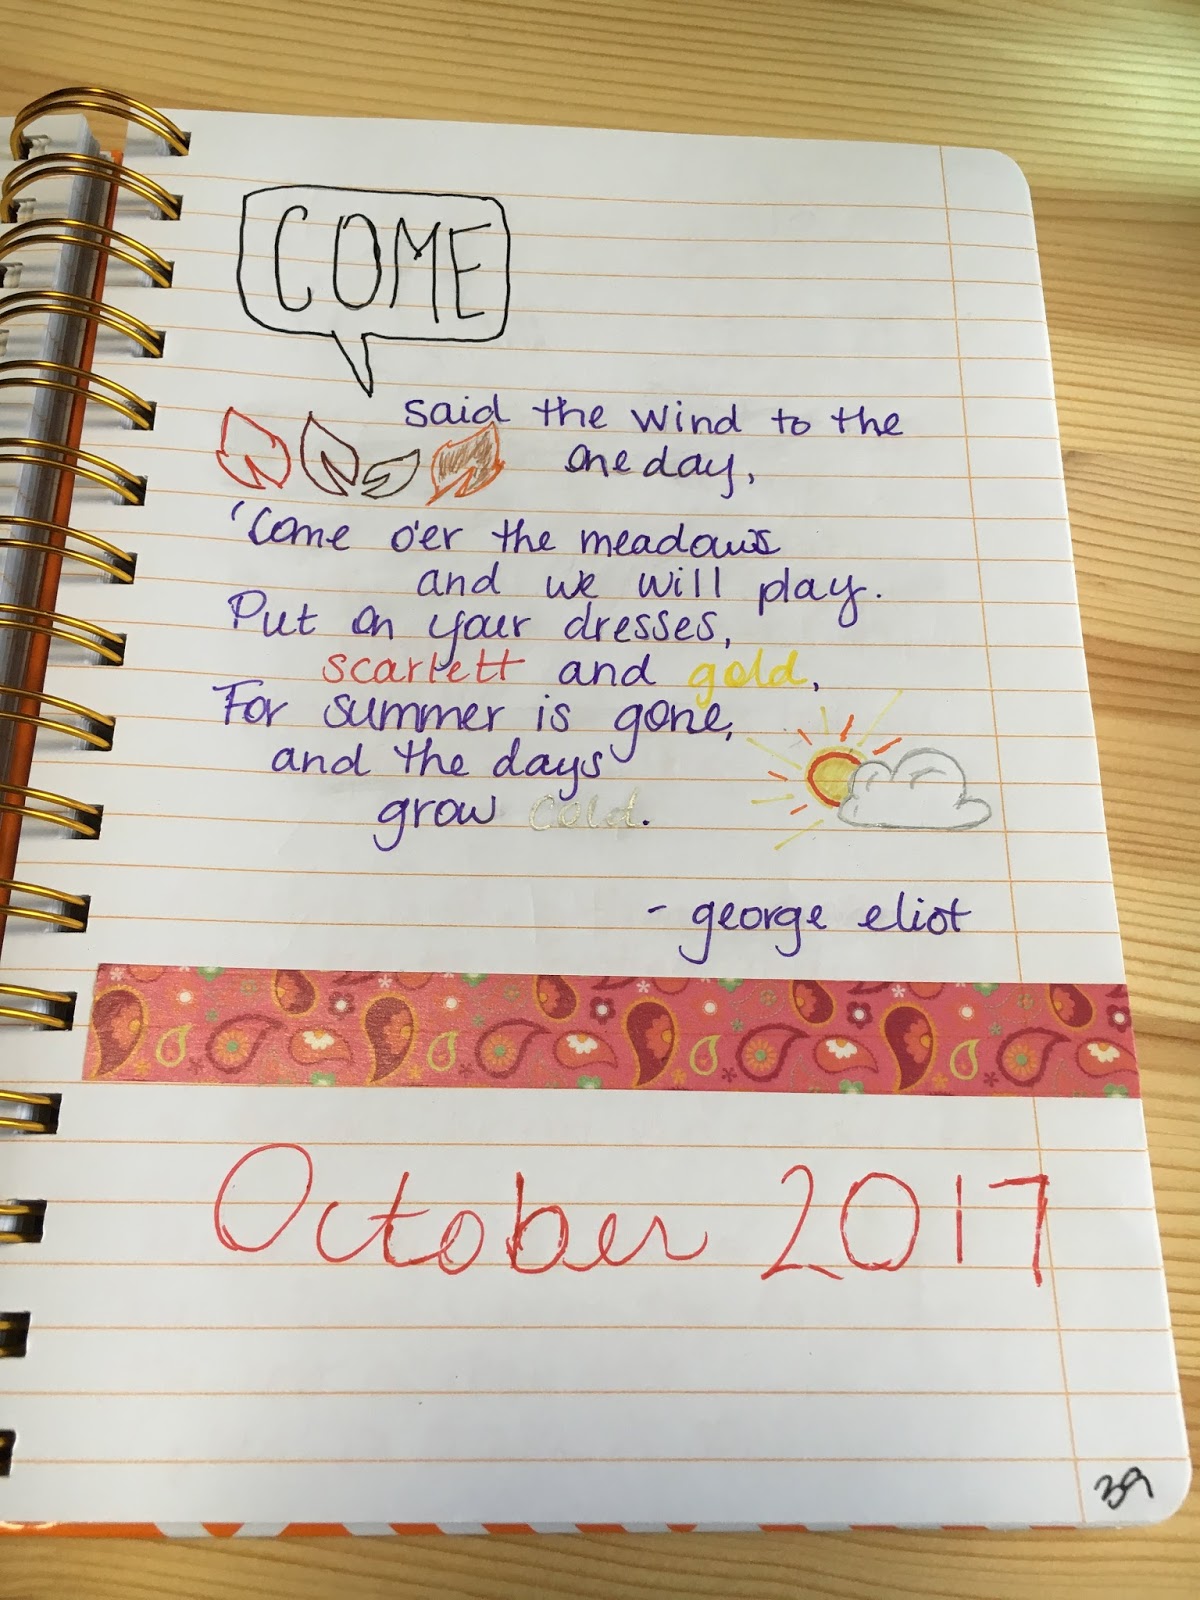 COME
said the wind to the
one day,
'Come o'er the meadows
and we will play.
Put on your dresses,
scarlett and gold,
For summer is gone,
and the days
grow cold.
- george eliot
October 2017
39